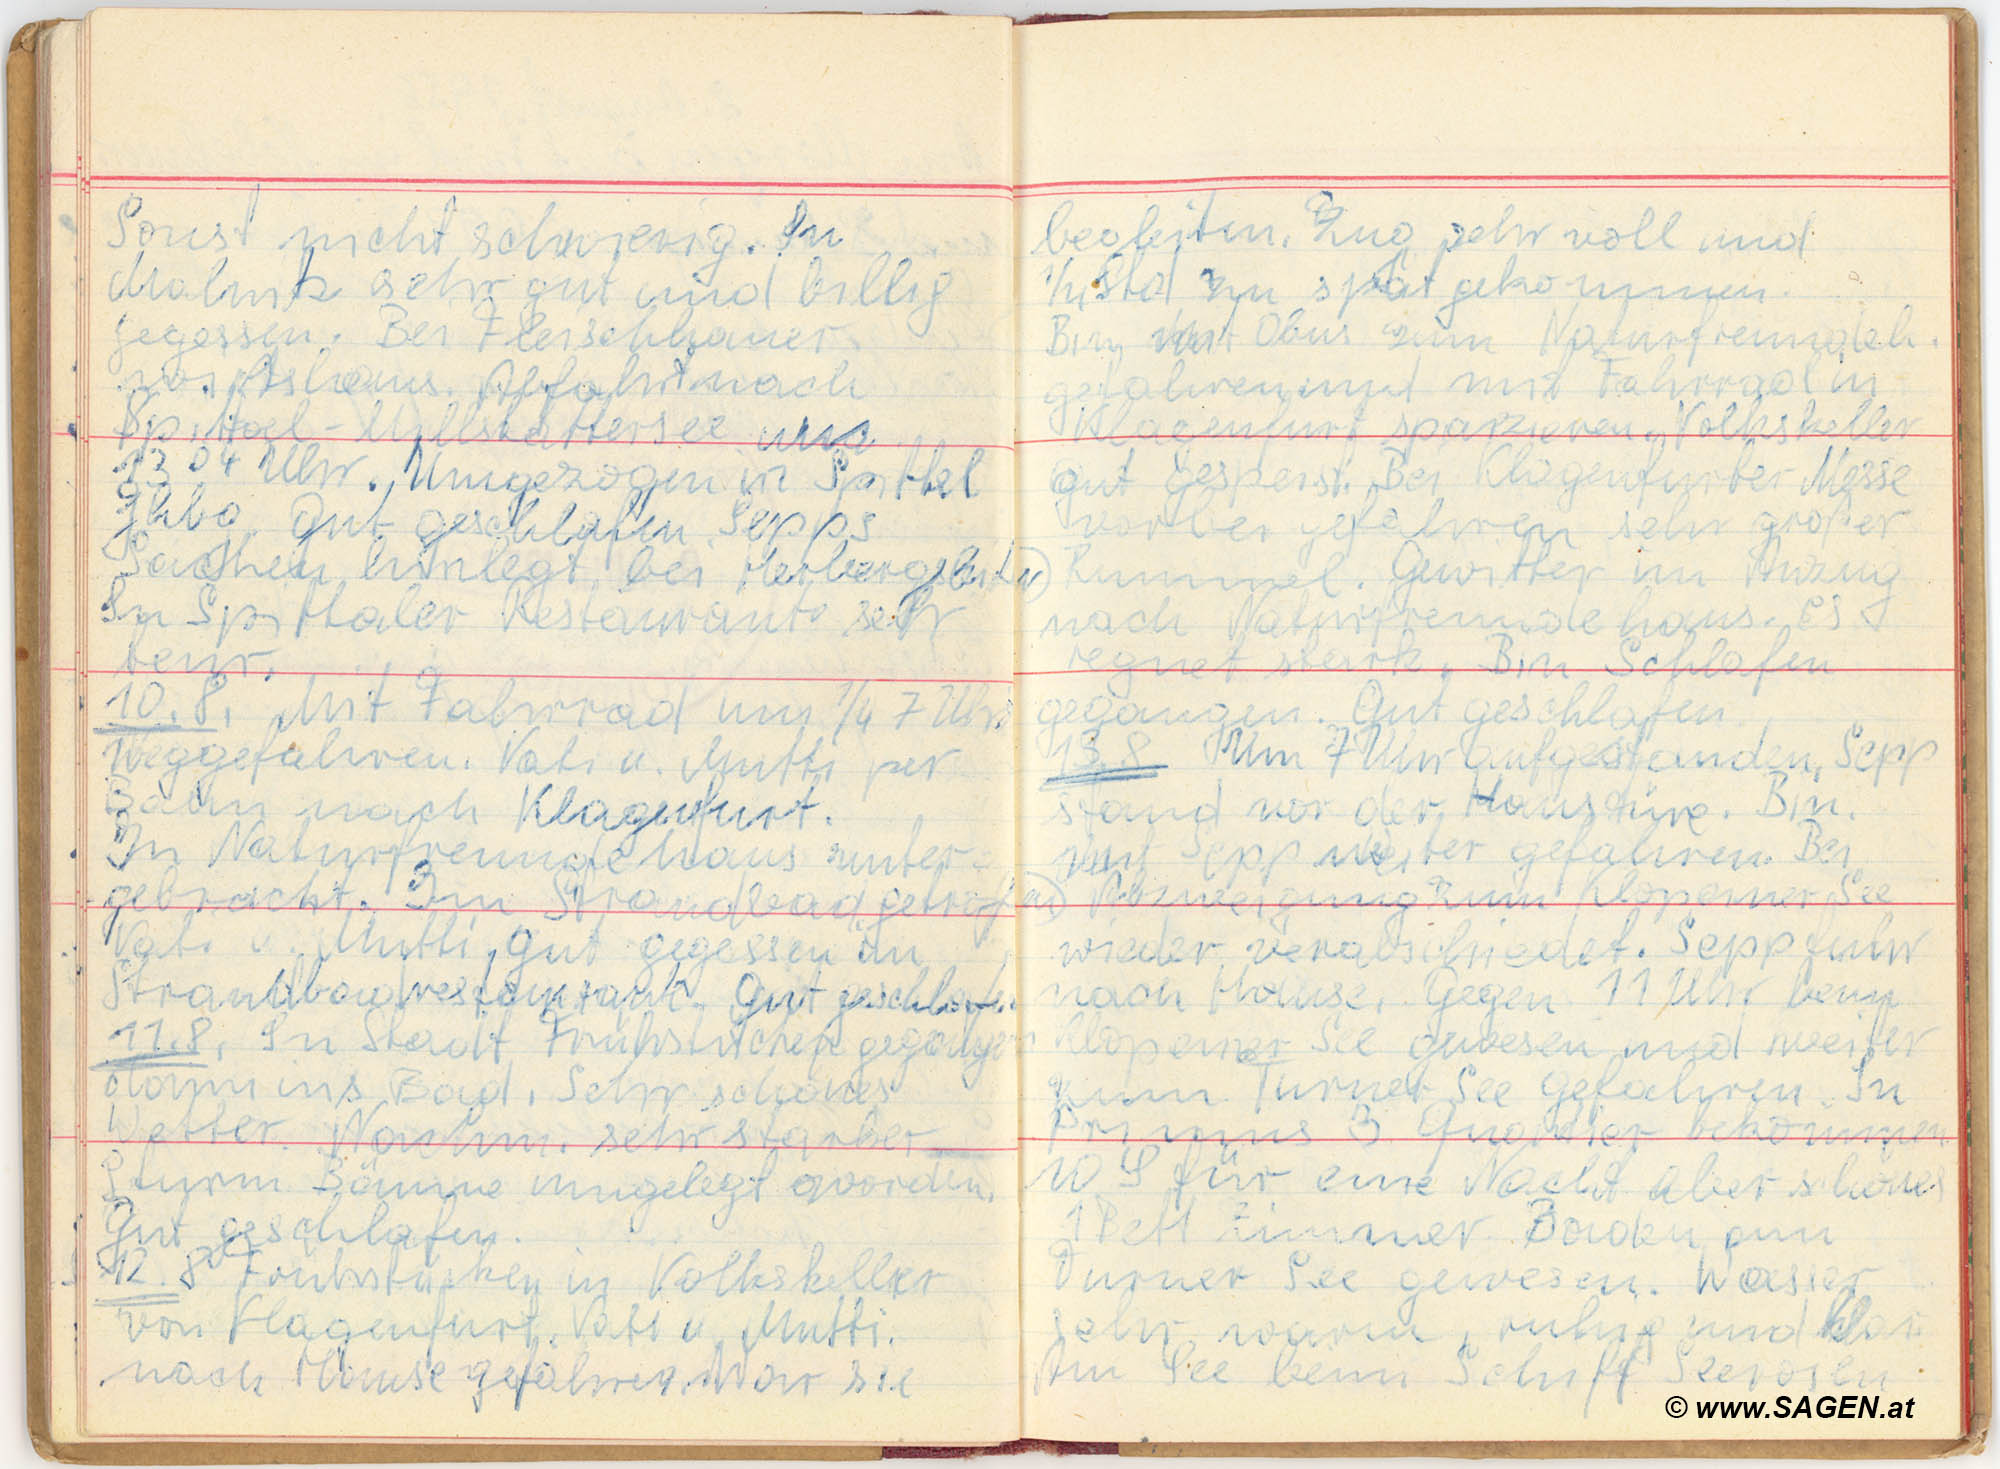 Sonst nicht schwierig. In
Malnitz sehr gut und billig
gegessen. Bei Fleischhauer
wirtshaus. Abfahrt nach
Spittal-Millstättersee um
13 04 Uhr. Umgezogen in Spittal
Gut geschlafen Sepps
Sachen hinlegt, bei Herbergsleiter
In Spittaler Restaurant sehr
teur.
10.8. Mit Fahrrad um 1/4 7 Uhr
weggefahren. Vati u. Mutti per
Bahn nach Klagenfurt.
In Naturfreundehaus unter-
gebracht. Im Strandbad getroffen
Vati u. Mutti, gut gegessen in
Strandbadrestaurant. Gut geschlafen
11.8. In Stadt Frühstücken gegangen
dann ins Bad. Sehr schönes
Wetter. Nachm. sehr starker
Sturm Bäume umgelegt worden.
Gut geschlafen.
12.8 Frühstücken in Volkskeller
von Klagenfurt. Vati u. Mutti.
nach Hause gefahren. War sie
begleiten. Zug sehr voll und
Std zu spät gekommen.
Bin mit Obus zum Naturfreundeh.
gefahren und mit Fahrrad in
Klagenfurt spazieren. Volkskeller
gut gespeist. Bei Klagenfurter Messe
vorbei gefahren sehr großer
Rummel. Gewitter im Anzug
nach Naturfreundehaus. Es
regnet stark. Bin Schlafen
gegangen. Gut geschlafen
13.8 Um 7 Uhr aufgestanden, Sepp
stand vor der Haustüre. Bin
mit Sepp weiter gefahren. Bei
Abzweigung zum Klopeiner See
wieder verabschiedet. Sepp fuhr
nach Hause. Gegen 11 Uhr beim
Klopeiner See gewesen und weiter
zum Turner See gefahren. In
Primus Quartier bekommen
10 S für eine Nacht aber schönes
1 Bett Zimmer. Baden am
Turner See gewesen. Wasser
sehr warm, ruhig und klar
Am See beim Schilf Seerosen
© www.SAGEN.at